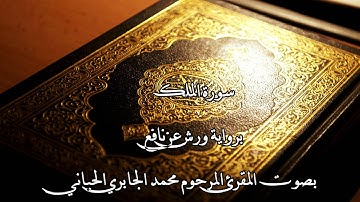 سورة الملك
برواية ورش عن نافع
بصوت المقرئ المرحوم محمد الجابري الحياني